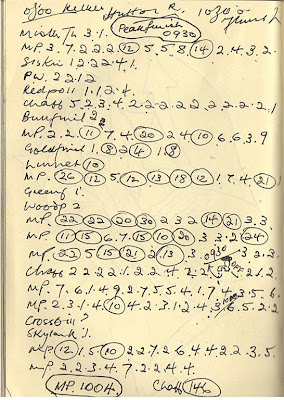 0700 Hutton R. 1030
Peak finish 0930
Mistle Th 3. 1.
MP. 3. 7. 2. 2. 2 12 5. 5. 8. 14 2. 4. 3. 2.
Siskin 12. 2 2. 4 1.
PW. 2 2 1 2
Redpoll 1. 1. 2. 4.
Chaff 5. 2. 3. 4. 2. 2. 2. 2. 2 2 2. 2. 2. 1
Bullfinch 2.
MP. 2. 2. 11 7. 4. 20 2 4 10 6. 6. 3. 9
Goldfinch 1. 8 2 4 1. 8
Linnet 10
MP. 26 12 5 12 13 18 12 1. 7. 4 21
Greenf 1.
Woodp 2
MP. 22 22 20 30 2 3 2 14 21 3. 3.
MP. 11 15 6. 7. 15 10 20 3 3. 2 24
MP. 22 5 15 21 2. 13 3. 0930 3. 2. 3.
Chaff 2 2 2 2. 1. 2. 2. 2. 2 2. 1. 2.
MP. 7. 6. 1. 4. 9. 2. 7. 5. 5. 4. 1. 7. 4. 3. 5. 6.
MP. 2. 3. 1. 4. 10 4. 2. 3. 1. 2. 4. 3. 6. 5. 2. 2
Crossbill 2
Skylark 1.
MP 12 1. 5. 10 2. 2. 7. 2. 6. 4. 4. 2. 2. 3. 5.
MP. 2. 2. 3. 4. 7. 2. 2. 4. 4.
MP. 1004. Chaff 146